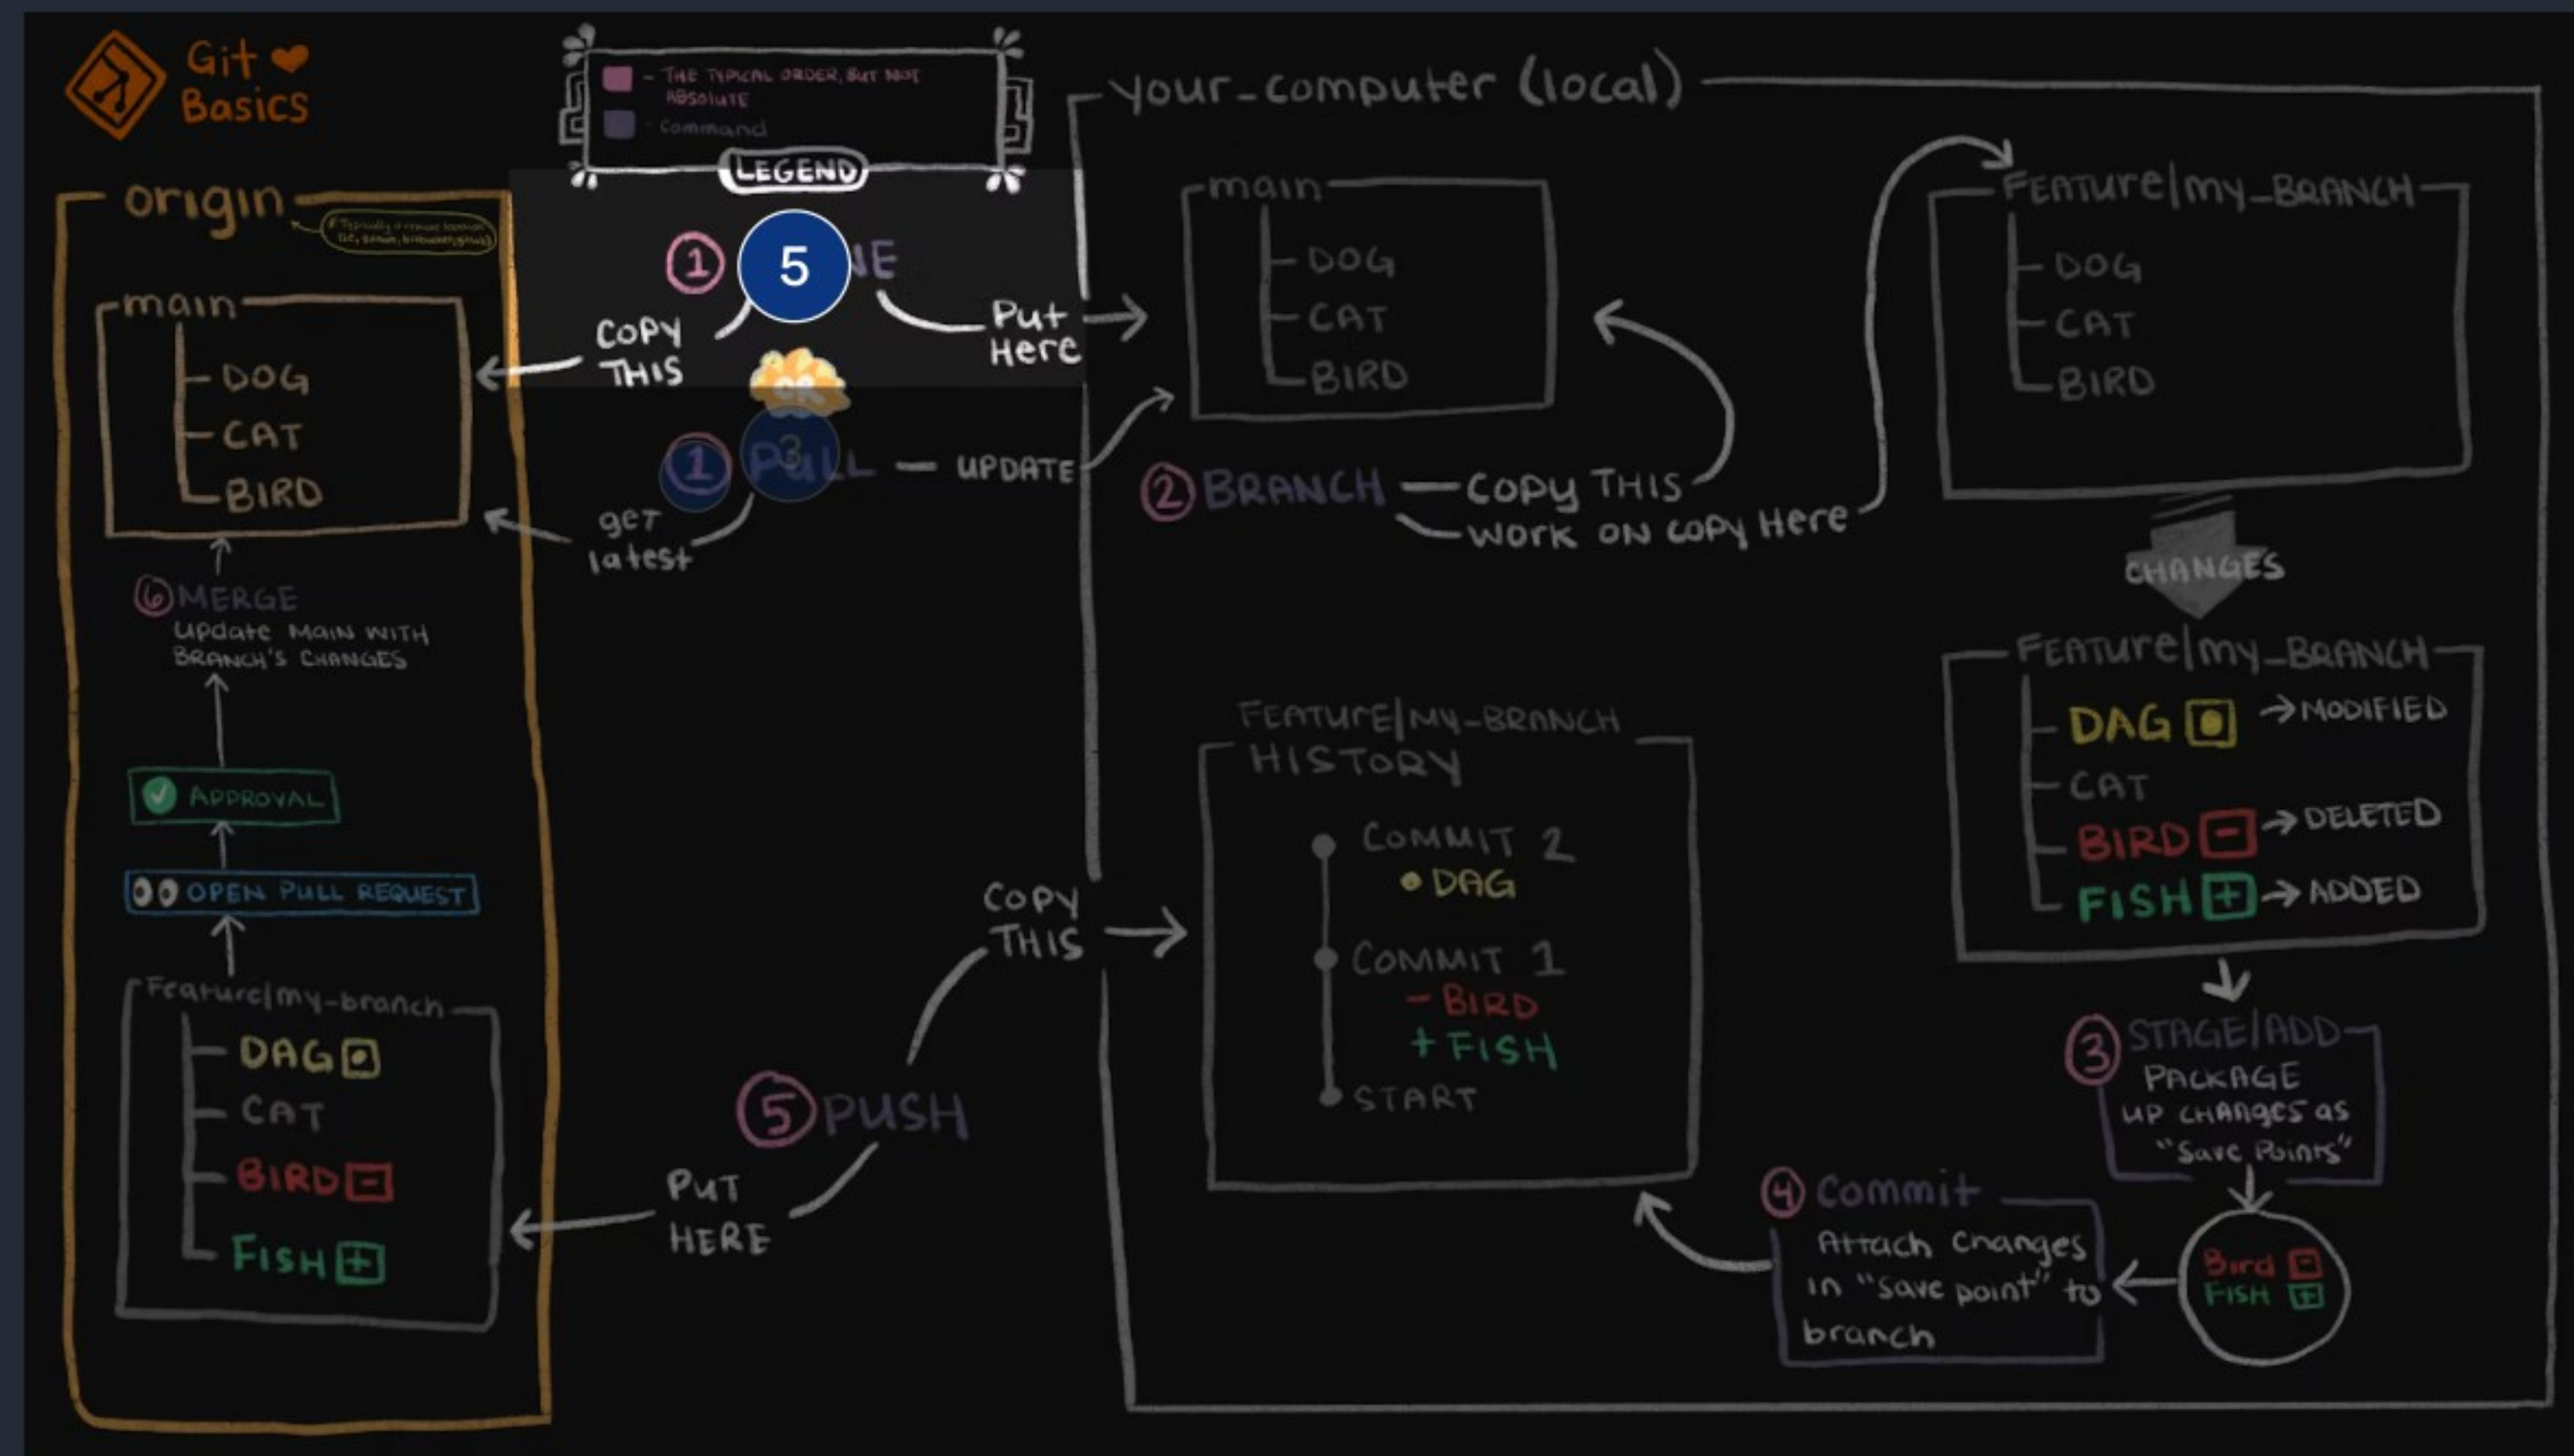 Git ❤
Basics
- THE TYPICAL ORDER, BUT NOT
ABSOLUTE
- Command
LEGEND
origin
# Typically a remote location
main
DOG
CAT
BIRD
6 MERGE
update MAIN WITH
BRANCH'S CHANGES
✓ APPROVAL
OPEN PULL REQUEST
Feature/my-branch
DAG
CAT
BIRD -
FISH +
1
5
NE
COPY
THIS
Put
Here
OR
1 PULL — UPDATE
3
get
latest
5 PUSH
COPY
THIS
PUT
HERE
your_computer (local)
main
DOG
CAT
BIRD
2 BRANCH — COPY THIS
WORK ON COPY Here
FEATURE/my_BRANCH
DOG
CAT
BIRD
CHANGES
FEATURE/my_BRANCH
DAG → MODIFIED
CAT
BIRD - → DELETED
FISH + → ADDED
3 STAGE/ADD
PACKAGE
UP CHANGES as
"Save Points"
Bird -
FISH +
4 Commit
Attach Changes
in "save point" to
branch
FEATURE/MY-BRANCH
HISTORY
COMMIT 2
• DAG
COMMIT 1
- BIRD
+ FISH
START